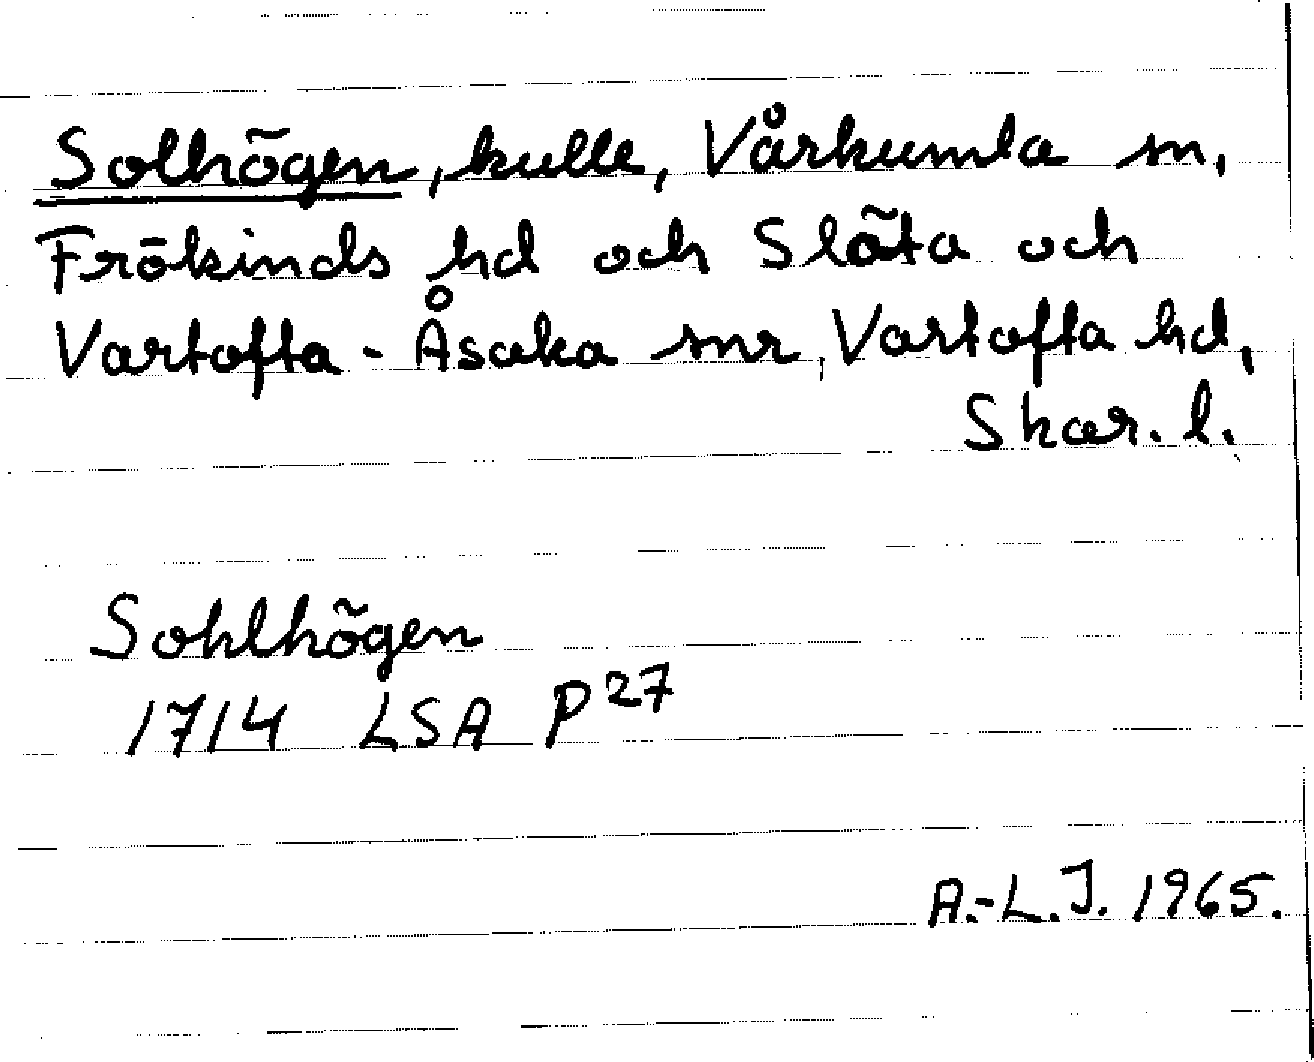 Solhögen, kulle, Vårkumla sn,
Frökinds hd och Slöta och
Vartofta-Åsaka snr, Vartofta hd,
Skar. l.
Sohlhögen
1714 LSA P27
A.-L.J. 1965.